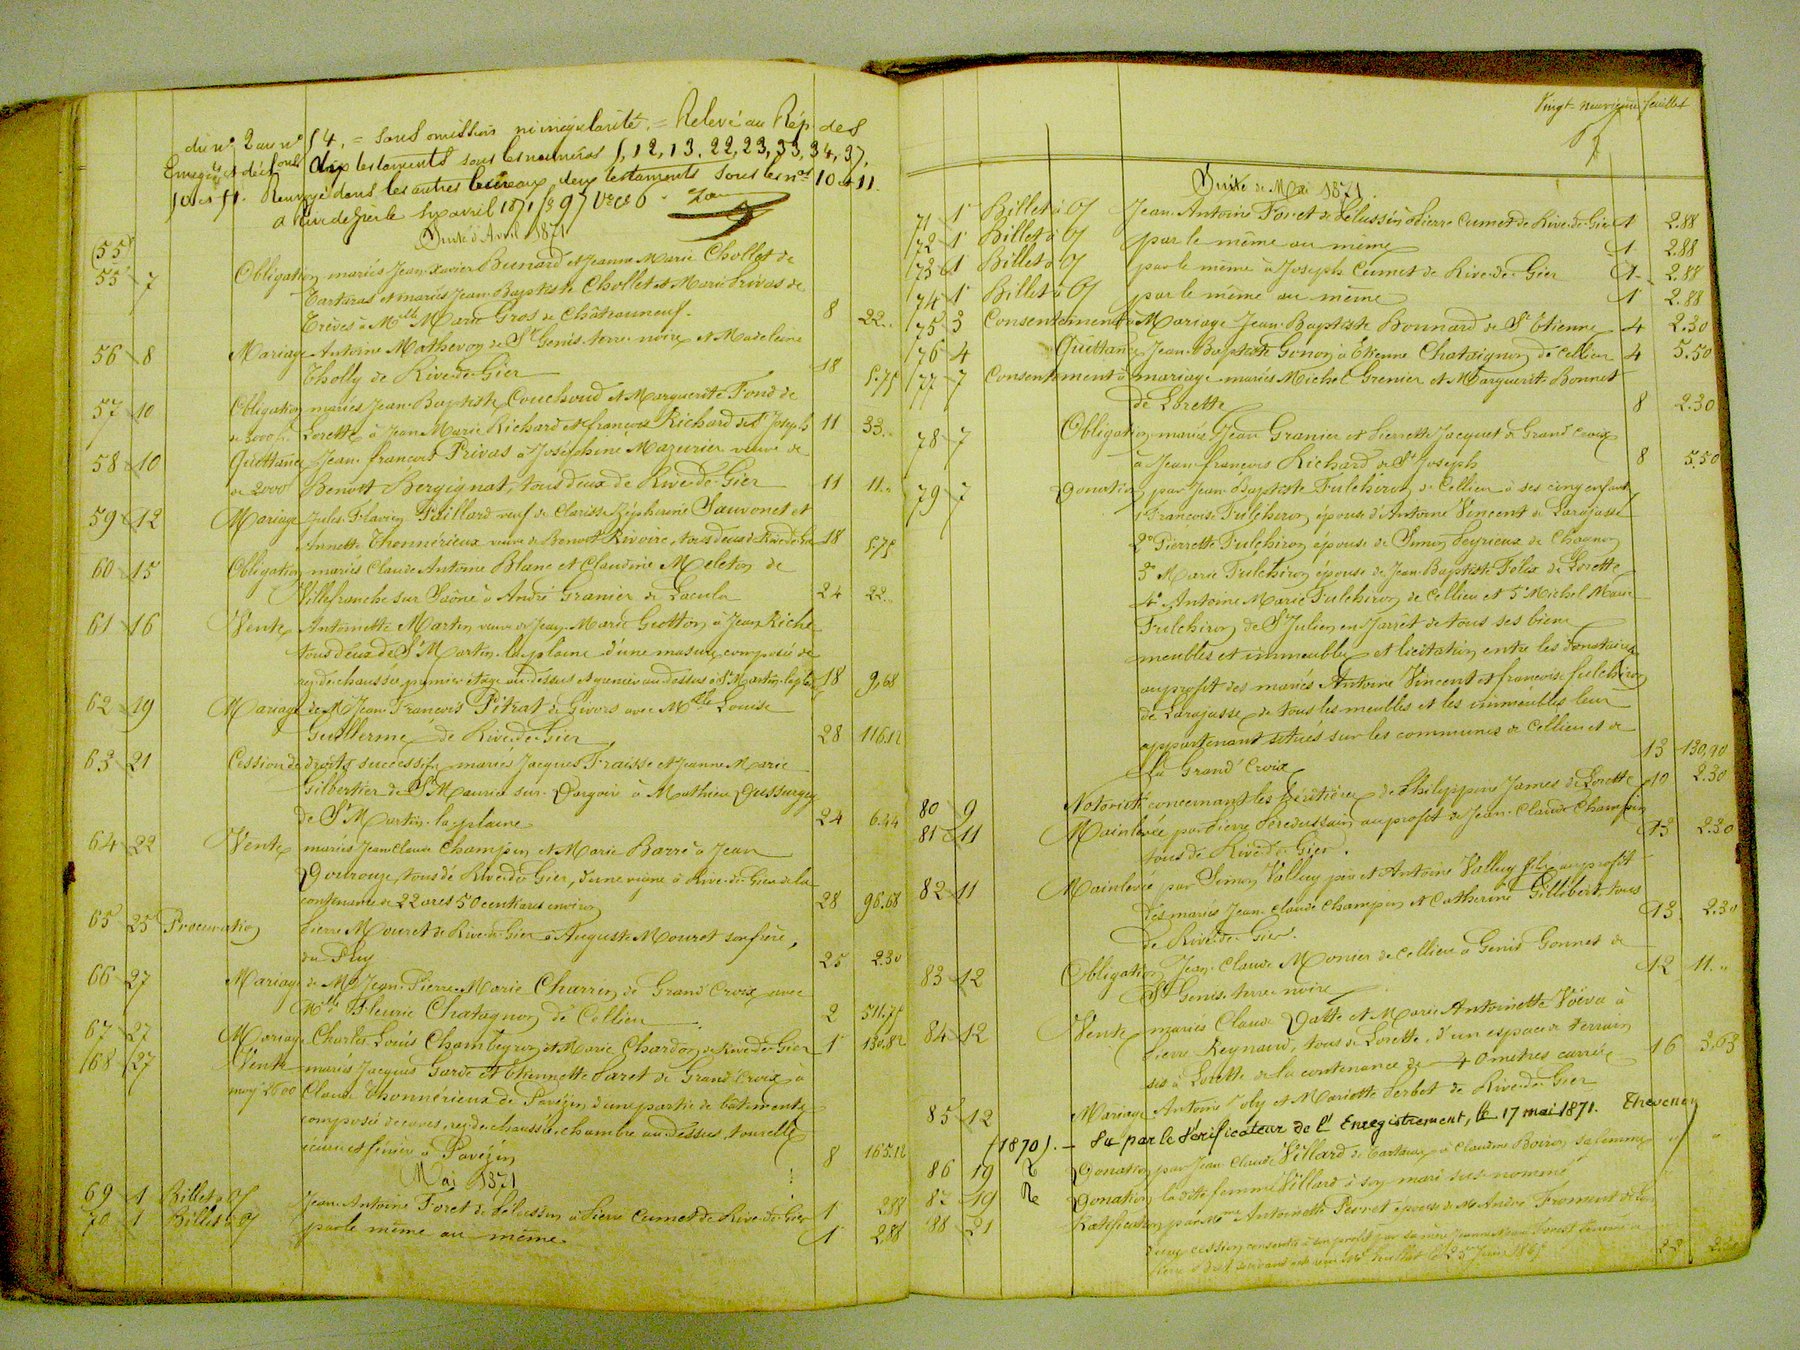 du n° 2 au n° 54. = sans omission ni irrégularité. = Relevé au Rép. des
dix testaments sous les numéros 12, 13, 22, 23, 33, 34, 37,
Renvoyé dans les autres bureaux deux testaments sous les nos 10 et 11.
à Rive de Gier le six avril 1871
Suite d'Avril 1871
(55)
55 7 Obligation mariés Jean Xavier Bunard et Jeanne Marie Chollet de
Tartaras et mariés Jean Baptiste Chollet et Marie Privas de
Trèves à Mlle Marie Gros de Châteauneuf. 8 22..
56 8 Mariage Antoine Mathevon de St Genis terre noire et Madeleine
Tholly de Rive-de-Gier 18 5.75
57 10 Obligation mariés Jean Baptiste Couchoud et Marguerite Fond de
de 3000 f. Lorette à Jean Marie Richard et françois Richard de St Joseph 11 33..
58 10 Quittance Jean françois Privas à Joséphine Mazurier veuve de
de 2000 Benoit Bergignat, tous deux de Rive-de-Gier 11 11..
59 12 Mariage Jules Flavien Paillard veuf de Clarisse Zéphirine Sauvonet et
Annette Thonnérieux veuve de Benoit Rivoire, tous deux de Rive-de-Gier 18 5.75
60 15 Obligation mariés Claude Antoine Blanc et Claudine Meleton de
Villefranche sur Saône à André Granier de Lacula 24 22..
61 16 Vente Antoinette Martin veuve de Jean Marie Guotton à Jean Riche
tous deux de St Martin la plaine d'une masure composée de
rez-de-chaussée premier étage au dessus et grenier au dessus à St Martin la plaine 18 9,68
62 19 Mariage de M. Jean François Pitrat de Givors avec Mlle Louise
Guillerme de Rive-de-Gier 28 116.12
63 21 Cession de droits successifs mariés Jacques Fraisse et Jeanne Marie
Gilbertier de St Maurice sur Dargoire à Mathieu Dussurgey
de St Martin la plaine 24 6.44
64 22 Vente mariés Jean Claude Champin et Marie Barré à Jean
Gourouge, tous de Rive-de-Gier, d'une vigne à Rive-de-Gier de la
contenance de 22 ares 50 centiares environ 28 96.68
65 25 Procuration Pierre Mouret de Rive-de-Gier à Auguste Mouret son frère,
du Puy 25 2.30
66 27 Mariage de Mr Jean Pierre Marie Charrin de Grand'Croix avec
Mlle Fleurie Chatagnon de Cellieu 2 511.75
67 27 Mariage Charles Louis Chambeyron et Marie Chardon de Rive-de-Gier 1 130.82
68 27 Vente mariés Jacques Garde et Etiennette Paret de Grand'Croix à
moy. 2600 Claude Thonnérieux de Pavezin d'une partie de bâtiments
composée de caves, rez-de-chaussée, chambre au dessus, tourelle
écurie et fenier à Pavezin 8 165.12
Mai 1871
69 1 Billet à O/ Jean Antoine Foret de Pélussin à Pierre Cumet de Rive-de-Gier 1 2.88
70 1 Billet à O/ par le même au même 1 2.88
Vingt neuvième feuillet
Suite de Mai 1871.
71 1 Billet à O/ Jean Antoine Foret de Pélussin à Pierre Cumet de Rive-de-Gier 1 2.88
72 1 Billet à O/ par le même au même 1 2.88
73 1 Billet à O/ par le même à Joseph Cumet de Rive-de-Gier 1 2.88
74 1 Billet à O/ par le même au même 1 2.88
75 3 Consentement à Mariage Jean Baptiste Bonnard de St Etienne 4 2.30
76 4 Quittance Jean Baptiste Gonon à Etienne Chataignon de Cellieu 4 5.50
77 7 Consentement à mariage mariés Michel Grenier et Marguerite Bonnet
de Lorette 8 2.30
78 7 Obligation mariés Jean Granier et Pierrette Jacquet de Grand'Croix
à Jean françois Richard de St Joseph 8 5.50
79 7 Donation par Jean Baptiste Fulchiron de Cellieu à ses cinq enfants
1° Françoise Fulchiron épouse d'Antoine Vincent de Larajasse
2° Pierrette Fulchiron épouse de Simon Peyrieux de Chagnon
3° Marie Fulchiron épouse de Jean Baptiste Félix de Lorette
4° Antoine Marie Fulchiron de Cellieu et 5° Michel Marie
Fulchiron de St Julien en Jarrêt de tous ses biens
meubles et immeubles et licitation entre les donataires
au profit des mariés Antoine Vincent et françoise fulchiron
de Larajasse de tous les meubles et les immeubles leur
appartenant situés sur les communes de Cellieu et de
La Grand'Croix 13 130.90
80 9 Notoriété concernant les héritiers de Philippine James de Lorette 10 2.30
81 11 Mainlevée par Pierre Péredussain au profit de Jean Claude Champin
tous de Rive-de-Gier. 13 2.30
82 11 Mainlevée par Simon Valluy père et Antoine Valluy fils au profit
des mariés Jean Claude Champin et Catherine Gillibert, tous
de Rive-de-Gier. 13 2.30
83 12 Obligation Jean Claude Monier de Cellieu à Genis Gonnet de
St Genis terre noire 12 11..
84 12 Vente mariés Claude Datte et Marie Antoinette Voëva à
Pierre Reynaud, tous de Lorette, d'un espace de terrain
sis à Lorette de la contenance de 40 mètres carrés 16 3,63
85 12 Mariage Antoine Joly et Mariette Perbet de Rive-de-Gier
(1870). — Vu par le Vérificateur de l'Enregistrement, le 17 mai 1871. Thevenon
86 19 Donation par Jean Claude Villard de Tartaras à Claudine Boiron sa femme " "
87 19 Donation la dite femme Villard à son mari sus nommé " "
88 21 Ratification par Mme Antoinette Perret épouse de M. André Froment de Lyon
d'une cession consentie à son profit par sa mère
le 25 Juin 1869 22 2.30